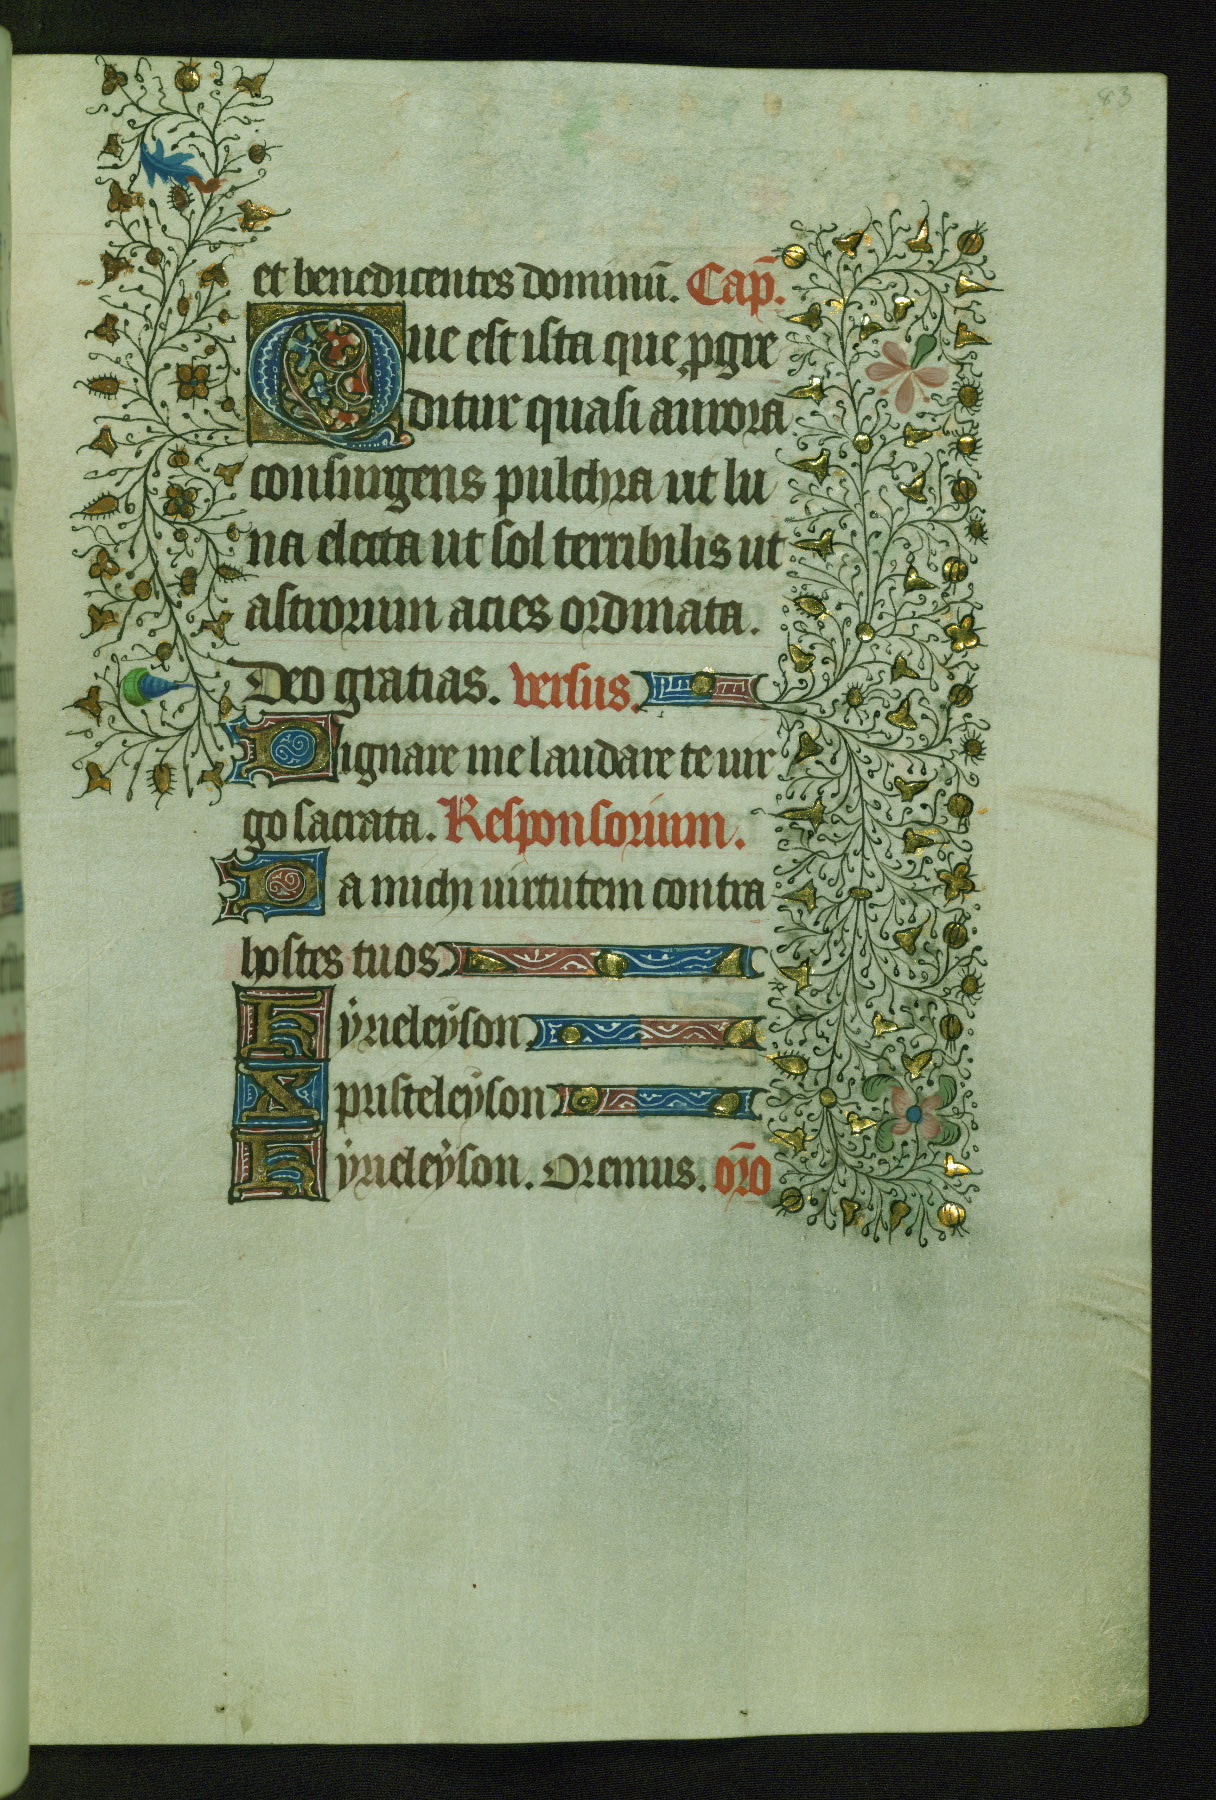 83
et benedicentes dominū. Cap̄.
Que est ista que ꝓgre
ditur quasi aurora
consurgens pulchra ut lu
na electa ut sol terribilis ut
astrorum acies ordinata.
Deo gratias. versus.
Dignare me laudare te uir
go sacrata. Responsorium.
Da michi uirtutem contra
hostes tuos
kẏrieleẏson
xpristeleẏson
kẏrieleẏson. Oremus. or̄o